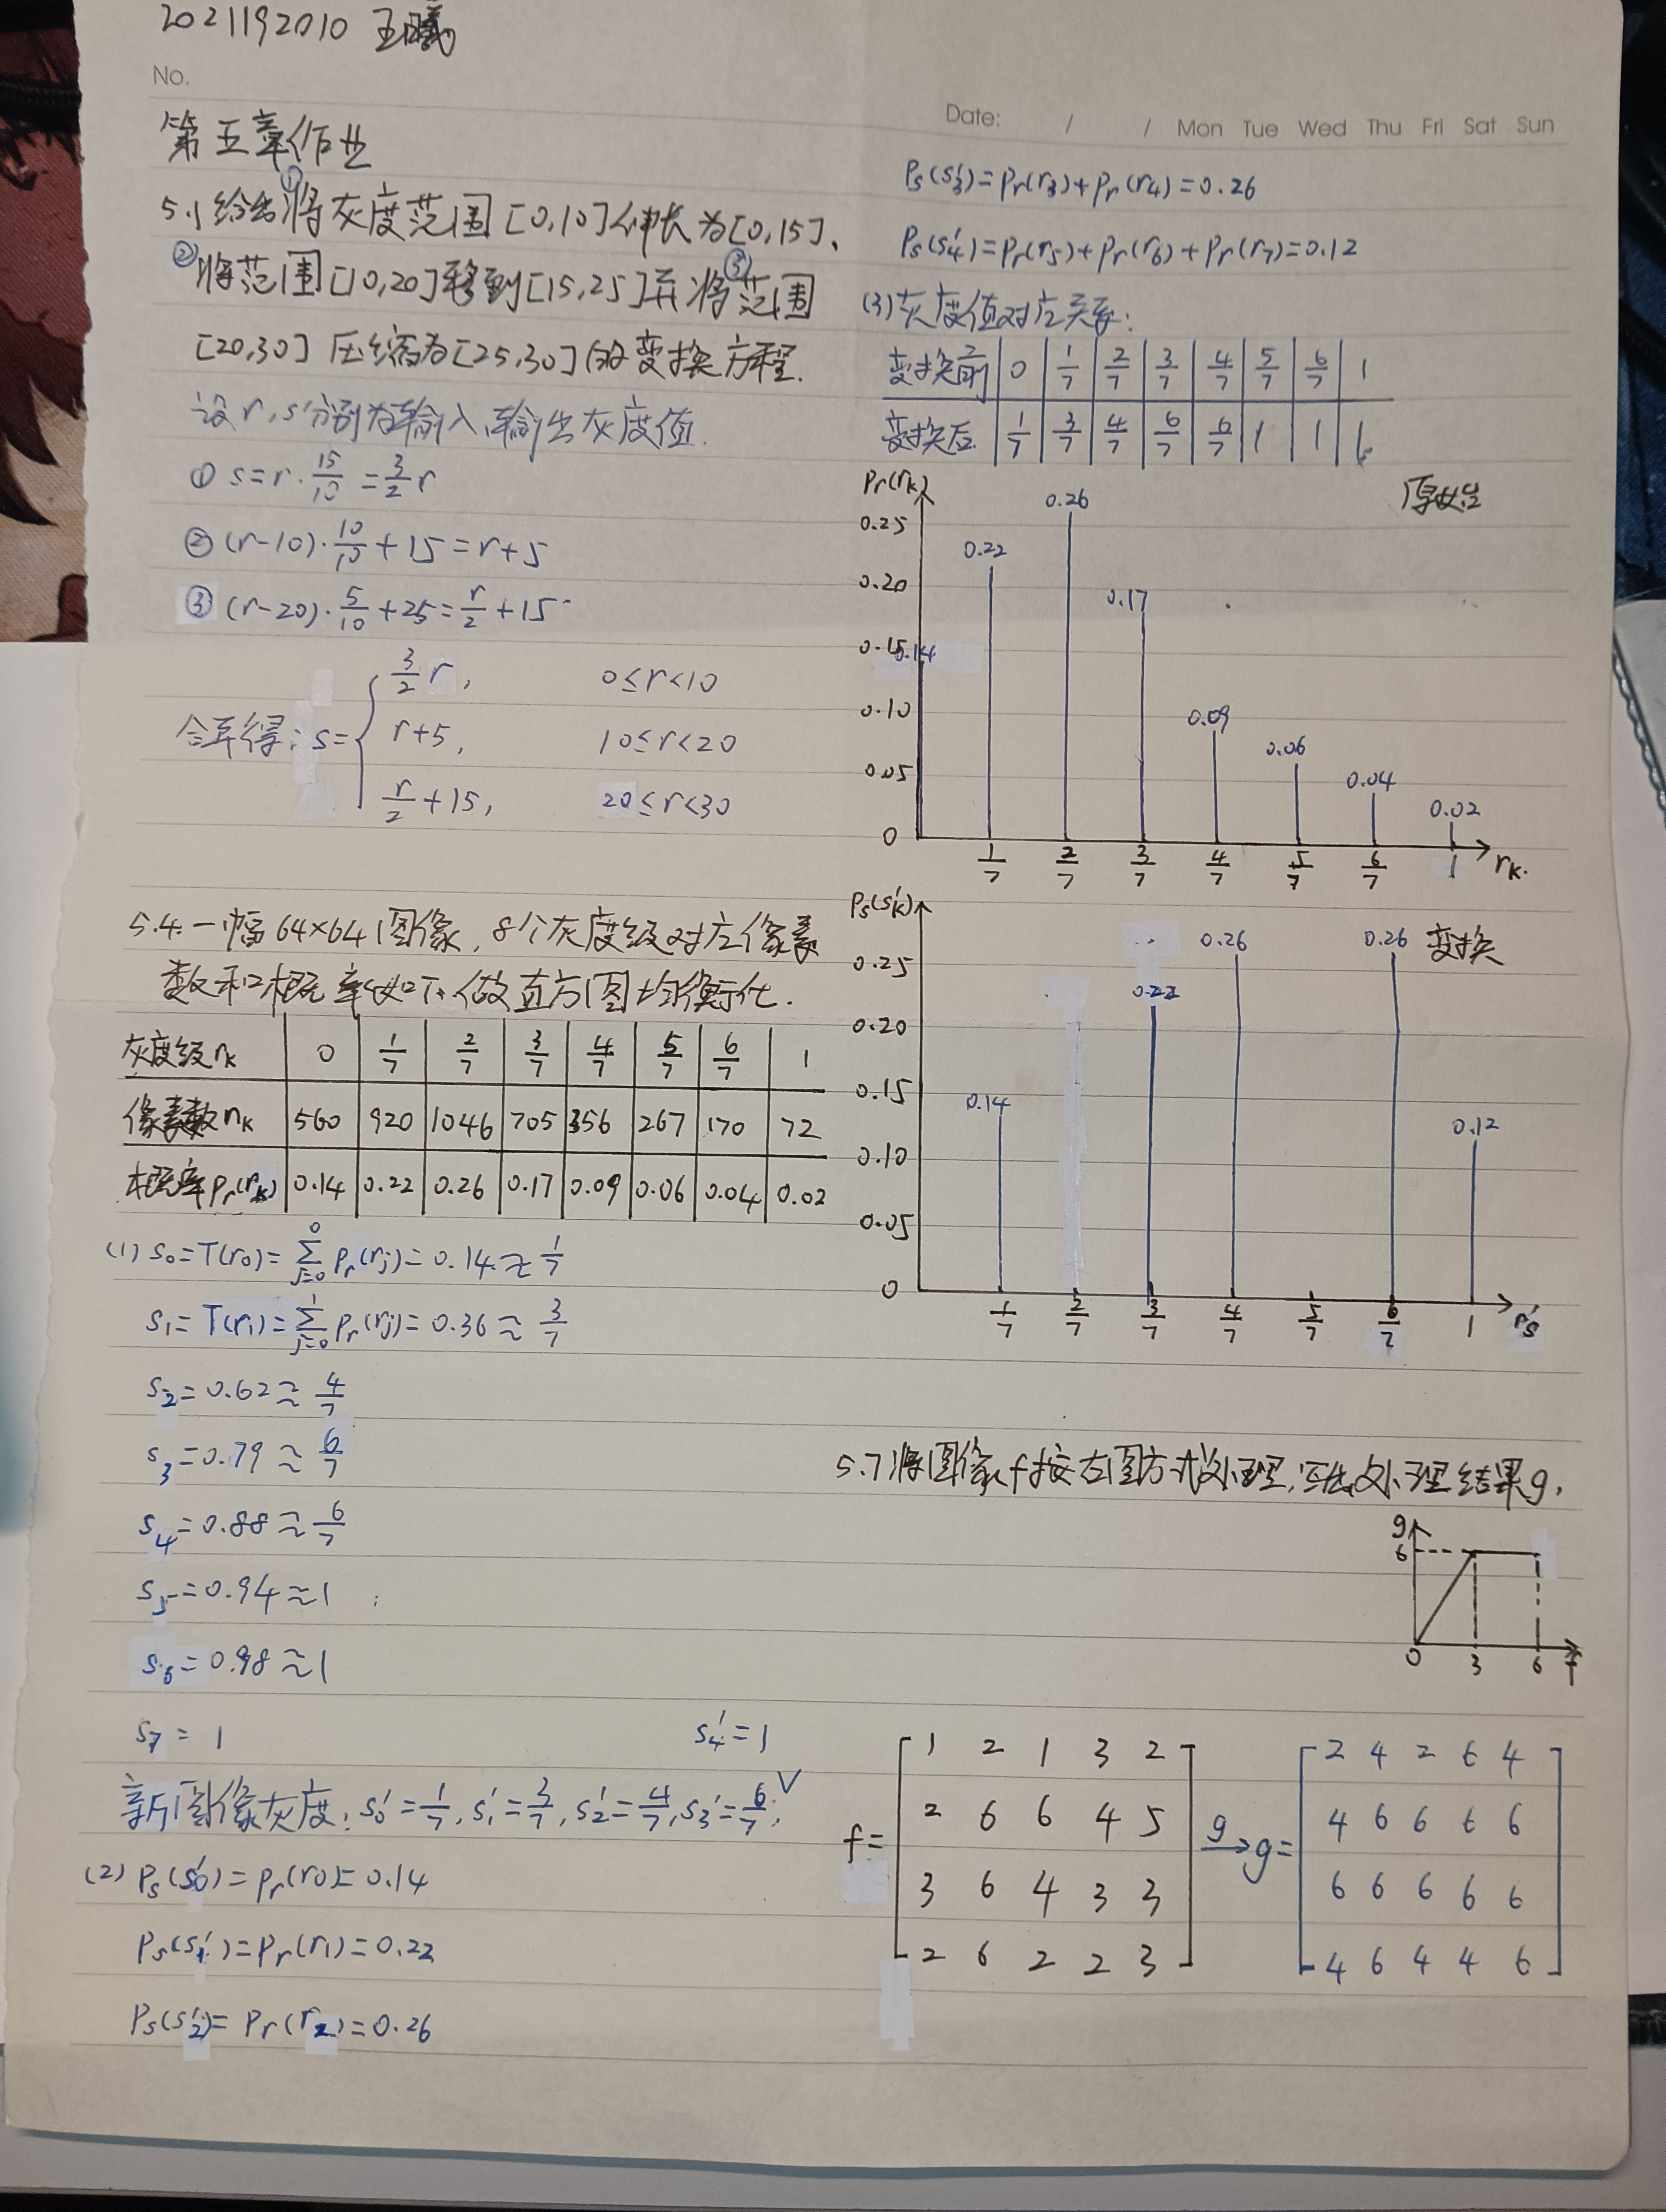 2021192010 王曦
No.
第五章作业
5.1 给出①将灰度范围[0,10]伸长为[0,15]、
②将范围[10,20]移到[15,25]并③将范围
[20,30]压缩为[25,30]的变换方程.
设r,s分别为输入、输出灰度值.
① s=r·15/10=3/2 r
② (r-10)·10/10+15=r+5
③ (r-20)·5/10+25=r/2+15
合并得: s=
3/2 r, 0≤r<10
r+5, 10≤r<20
r/2+15, 20≤r<30
5.4 一幅64×64图像,8个灰度级对应像素
数和概率如下,做直方图均衡化.
灰度级rk 0 1/7 2/7 3/7 4/7 5/7 6/7 1
像素数nk 560 920 1046 705 356 267 170 72
概率Pr(rk) 0.14 0.22 0.26 0.17 0.09 0.06 0.04 0.02
(1) s0=T(r0)=∑(j=0→0) Pr(rj)=0.14≈1/7
s1=T(r1)=∑(j=0→1) Pr(rj)=0.36≈3/7
s2=0.62≈4/7
s3=0.79≈6/7
s4=0.88≈6/7
s5=0.94≈1
s6=0.98≈1
s7=1
s4'=1
新图像灰度: s0'=1/7, s1'=3/7, s2'=4/7, s3'=6/7,
(2) Ps(s0')=Pr(r0)=0.14
Ps(s1')=Pr(r1)=0.22
Ps(s2')=Pr(r2)=0.26
Date: / / Mon Tue Wed Thu Fri Sat Sun
Ps(s3')=Pr(r3)+Pr(r4)=0.26
Ps(s4')=Pr(r5)+Pr(r6)+Pr(r7)=0.12
(3)灰度值对应关系:
变换前 0 1/7 2/7 3/7 4/7 5/7 6/7 1
变换后 1/7 3/7 4/7 6/7 6/7 1 1 1
Pr(rk)
原始
0.25
0.20
0.15
0.10
0.05
0
0.14
0.22
0.26
0.17
0.09
0.06
0.04
0.02
1/7 2/7 3/7 4/7 5/7 6/7 1 rk.
Ps(sk')
变换
0.25
0.20
0.15
0.10
0.05
0
0.14
0.22
0.26
0.26
0.12
1/7 2/7 3/7 4/7 5/7 6/7 1
5.7 将图像f按右图方式处理,写出处理结果g.
g
6
0 3 6 f
f=
1 2 1 3 2
2 6 6 4 5
3 6 4 3 3
2 6 2 2 3
g→ g=
2 4 2 6 4
4 6 6 6 6
6 6 6 6 6
4 6 4 4 6